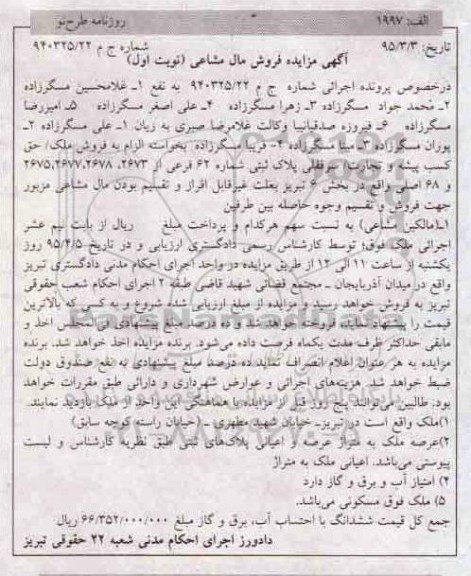 الف: ۱۹۹۷
روزنامه طرح‌نو
تاریخ: ۹۵/۳/۳
شماره ج م ۹۴۰۳۲۵/۲۲
آگهی مزایده فروش مال مشاعی (نوبت اول)
درخصوص پرونده اجرائی شماره ج م ۹۴۰۳۲۵/۲۲ به نفع ۱ـ غلامحسین مسگرزاده
۲ـ محمد جواد مسگرزاده ۳ـ زهرا مسگرزاده ۴ـ علی اصغر مسگرزاده ۵ـ امیررضا
مسگرزاده ۶ـ فیروزه صدقیانیبا وکالت غلامرضا صبری به زیان ۱ـ علی مسگرزاده ۲ـ
پوران مسگرزاده ۳ـ مینا مسگرزاده ۴ـ فریبا مسگرزاده بخواسته الزام به فروش ملک/ حق
کسب پیشه و تجارت / سرقفلی پلاک ثبتی شماره ۶۲ فرعی از ۲۶۷۳، ۲۶۷۵،۲۶۷۷،۲۶۷۸
و ۶۸ اصلی واقع در بخش ۶ تبریز بعلت غیرقابل افراز و تقسیم بودن مال مشاعی مزبور
جهت فروش و تقسیم وجوه حاصله بین طرفین
۱ـ(مالکین مشاعی) به نسبت سهم هرکدام و پرداخت مبلغ ریال از بابت نیم عشر
اجرائی ملک فوق؛ توسط کارشناس رسمی دادگستری ارزیابی و در تاریخ ۹۵/۴/۵ روز
یکشنبه از ساعت ۱۱ الی ۱۲ از طریق مزایده در واحد اجرای احکام مدنی دادگستری تبریز
واقع در میدان آذربایجان ـ مجتمع قضائی شهید قاضی طبقه ۲ اجرای احکام شعب حقوقی
تبریز به فروش خواهد رسید و مزایده از مبلغ ارزیابی شده شروع و به کسی که بالاترین
قیمت را پیشنهاد نماید، فروخت خواهد شد و ده درصد مبلغ پیشنهادی فی‌المجلس اخذ و
مابقی حداکثر ظرف مدت یکماه فرصت داده می‌شود. برنده مزایده اخذ خواهد شد. برنده
مزایده به هر عنوان اعلام انصراف نماید ده درصد مبلغ پیشنهادی به نفع صندوق دولت
ضبط خواهد شد. هزینه‌های اجرائی و عوارض شهرداری و دارائی طبق مقررات خواهد
بود. طالبین می‌توانند پنج روز قبل از مزایده با هماهنگی این واحد از ملک بازدید نمایند.
۱)ملک واقع است در تبریزـ خیابان شهید مطهری ـ (خیابان راسته کوچه سابق)
۲)عرصه ملک به متراژ عرصه و اعیانی پلاک‌های ثبتی طبق نظریه کارشناس و لیست
پیوستی می‌باشد. اعیانی ملک به متراژ
۴) امتیاز آب و برق و گاز دارد
۵) ملک فوق مسکونی می‌باشد.
جمع کل قیمت ششدانگ با احتساب آب، برق و گاز مبلغ ۶۶/۳۵۲/۰۰۰/۰۰۰ ریال
دادورز اجرای احکام مدنی شعبه ۲۲ حقوقی تبریز
ParsNamadData